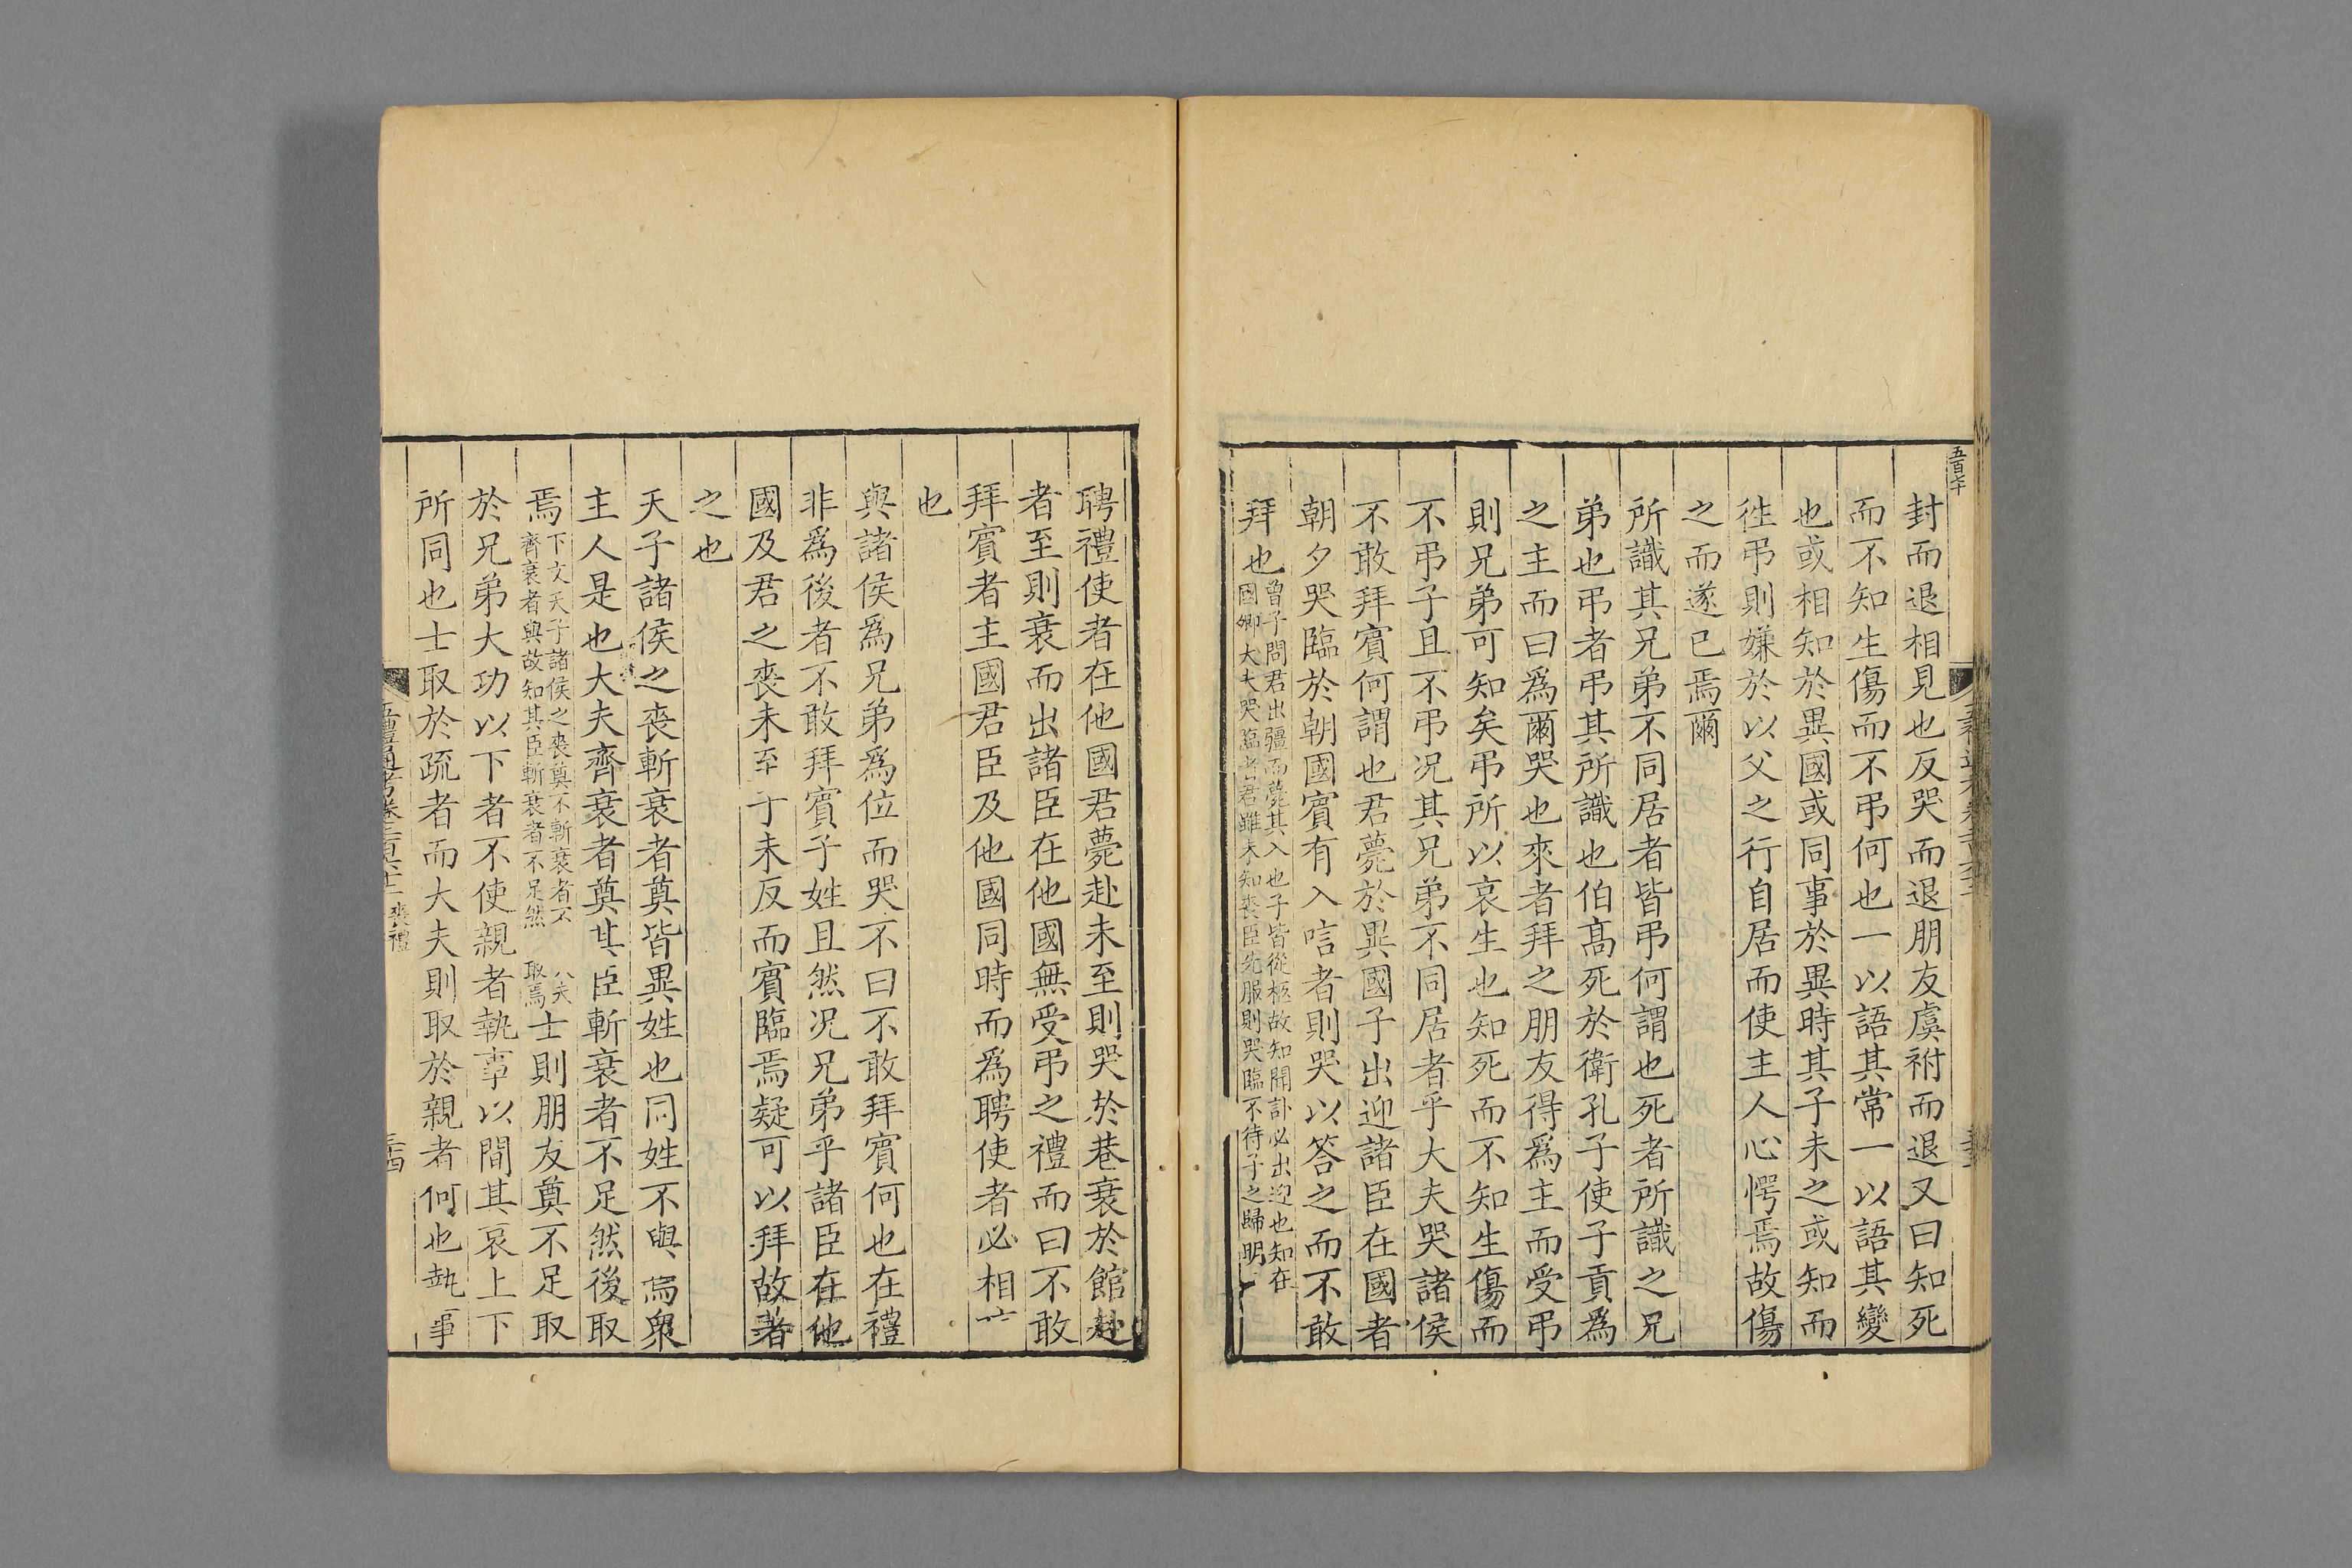 五百七十
封而退相見也反哭而退朋友虞祔而退又曰知死
而不知生傷而不弔何也一以語其常一以語其變
也或相知於異國或同事於異時其子未之或知而
徃弔則嫌於以父之行自居而使主人心愕焉故傷
之而遂已焉爾
所識其兄弟不同居者皆弔何謂也死者所識之兄
弟也弔者弔其所識也伯髙死於衛孔子使子貢爲
之主而曰爲爾哭也來者拜之朋友得爲主而受弔
則兄弟可知矣弔所以哀生也知死而不知生傷而
不弔子且不弔况其兄弟不同居者乎大夫哭諸侯
不敢拜賓何謂也君薨於異國子出迎諸臣在國者
朝夕哭臨於朝國賓有入唁者則哭以答之而不敢
拜也
曾子問君出疆而薨其入也子皆從柩故知聞訃必出迎也知在
國卿大夫哭臨者君雖未知喪臣先服則哭臨不待子之歸明
聘禮使者在他國君薨赴未至則哭於巷衰於館赴
者至則衰而出諸臣在他國無受弔之禮而曰不敢
拜賓者主國君臣及他國同時而爲聘使者必相
也
與諸侯爲兄弟爲位而哭不曰不敢拜賓何也在禮
非爲後者不敢拜賓子姓且然况兄弟乎諸臣在他
國及君之喪未至子未反而賓臨焉疑可以拜故著
之也
天子諸侯之喪斬衰者奠皆異姓也同姓不與焉衆
主人是也大夫齊衰者奠其臣斬衰者不足然後取
焉
下文天子諸侯之喪奠不斬衰者不
齊衰者與故知其臣斬衰者不足然
大夫
取焉
士則朋友奠不足取
於兄弟大功以下者不使親者執事以間其哀上下
所同也士取於疏者而大夫則取於親者何也執事
五禮通考卷二百六十二 喪禮
三四